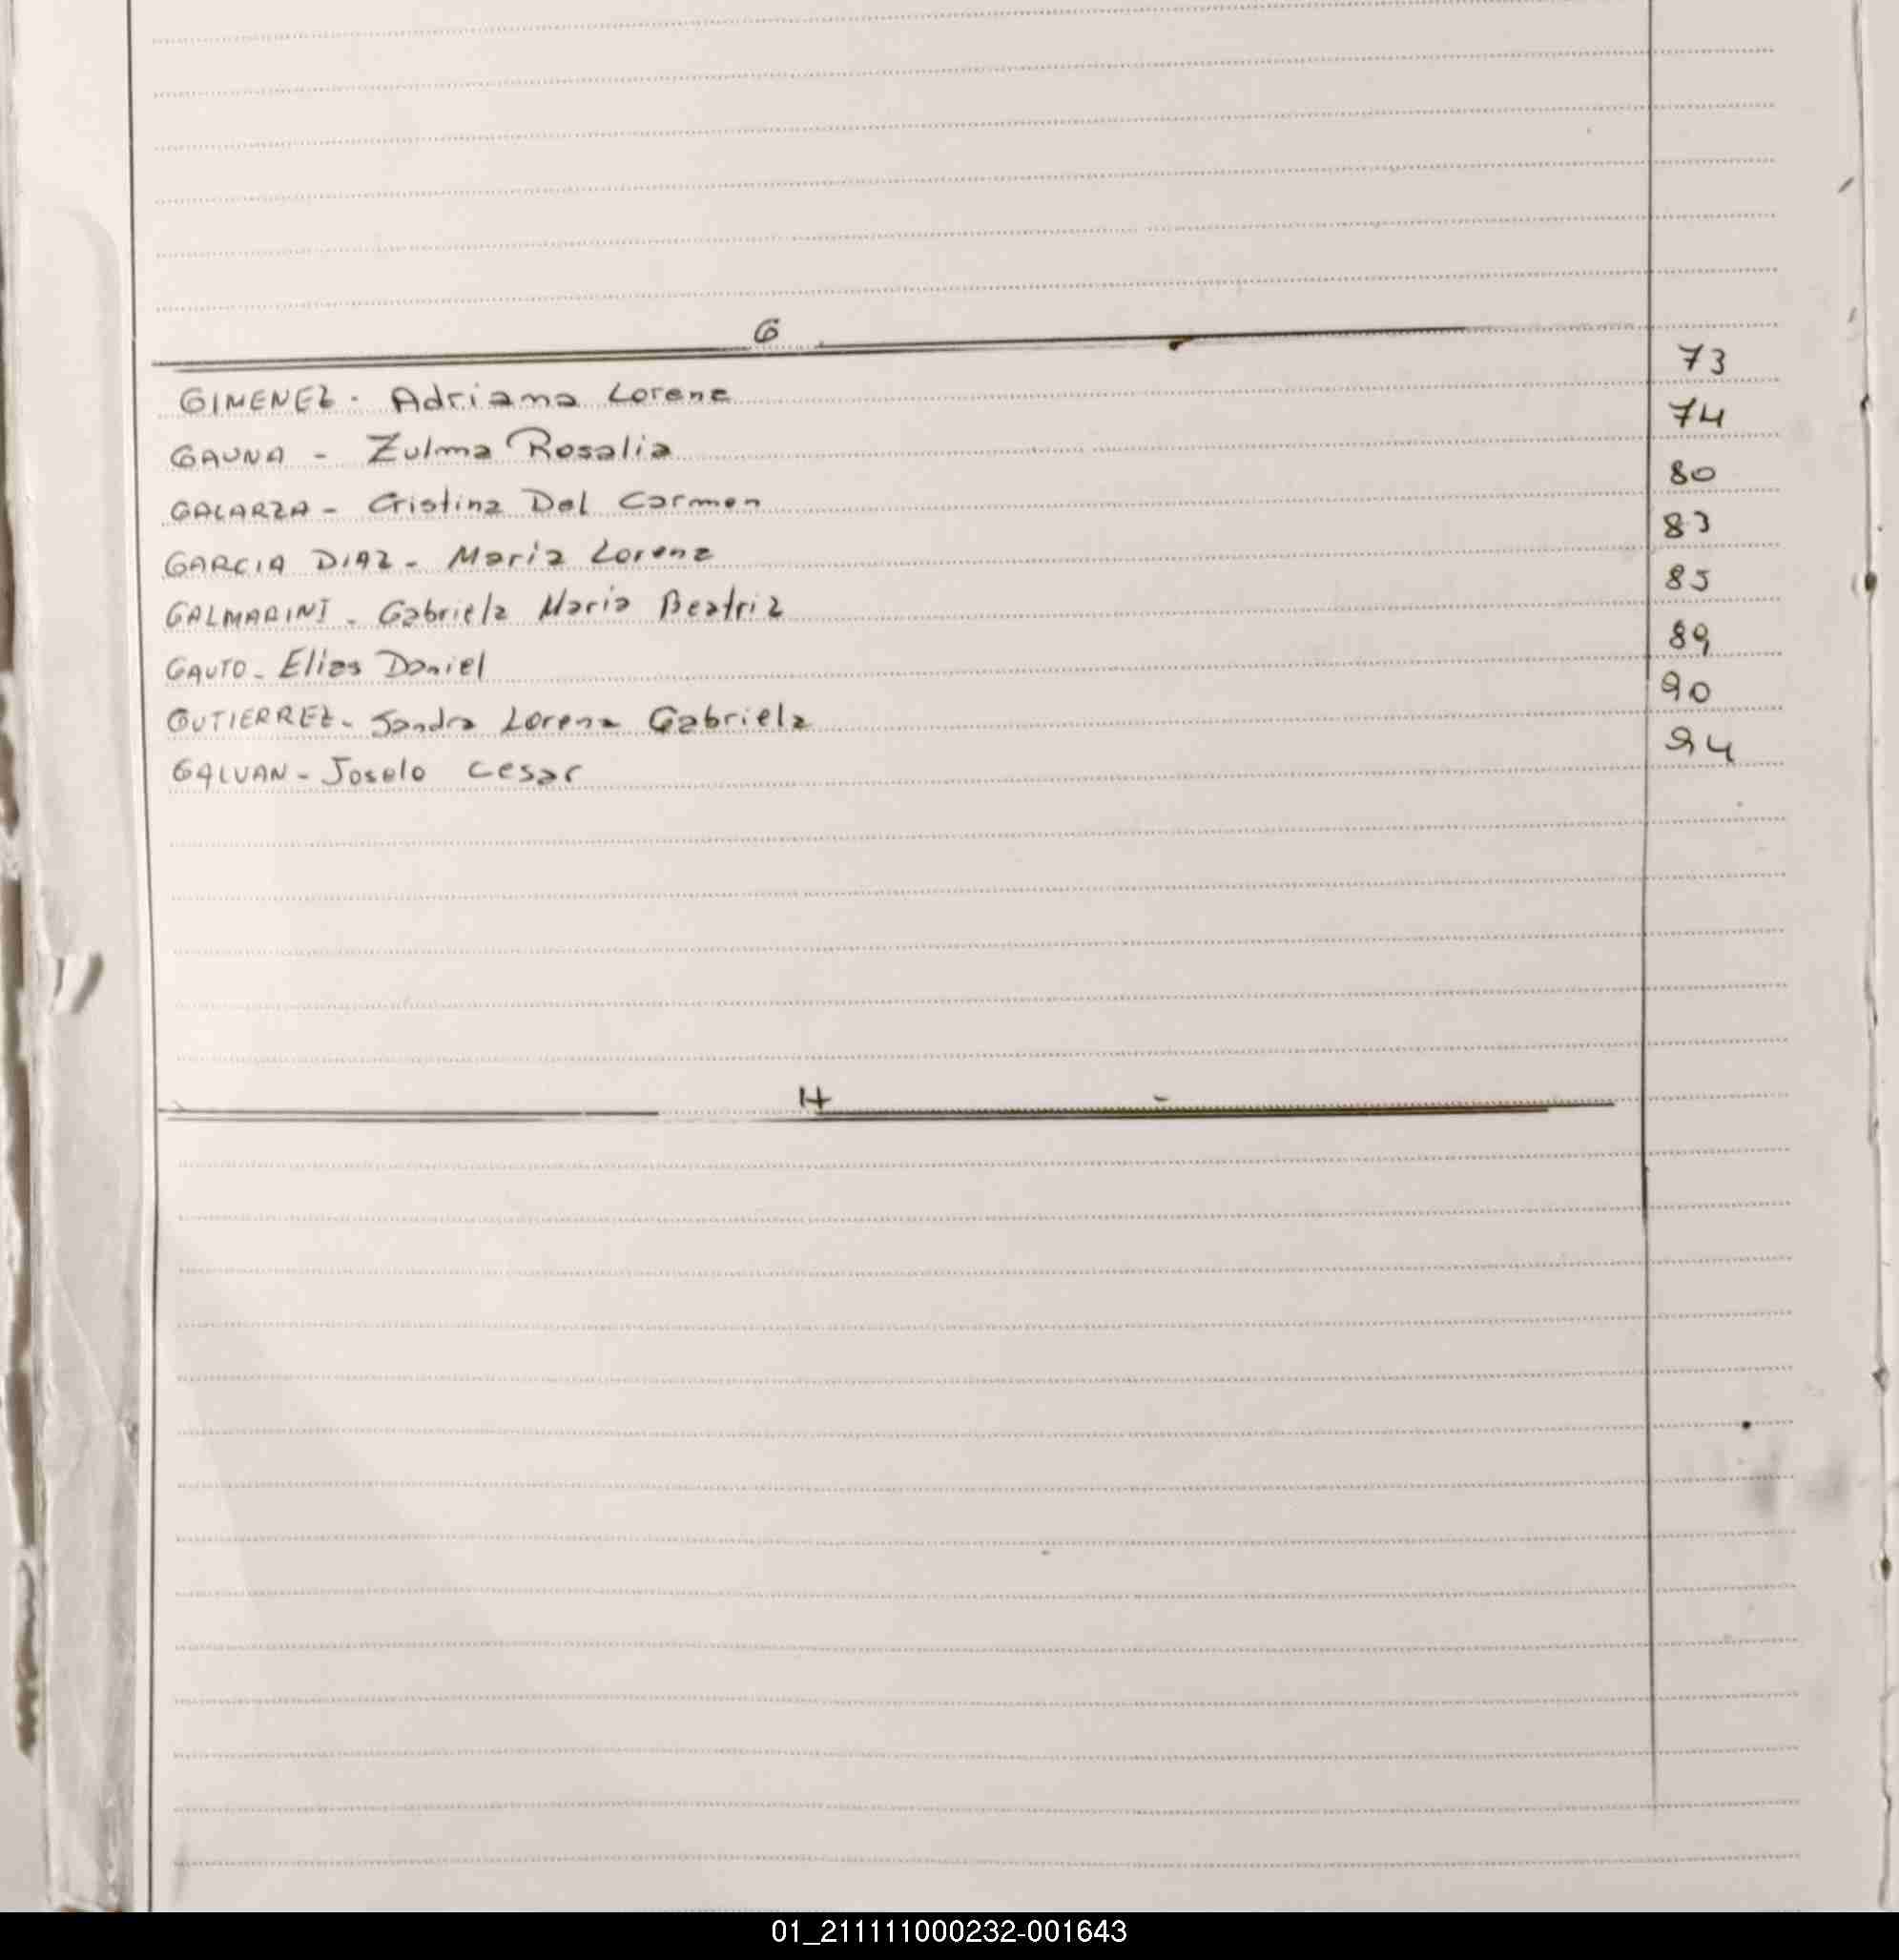 G
GIMENEZ - Adriana Lorena 73
GAUNA - Zulma Rosalia 74
GALARZA - Cristina Del Carmen 80
GARCIA DIAZ - Maria Lorena 83
GALMARINI - Gabriela Maria Beatriz 85
GAUTO - Elias Daniel 89
GUTIERREZ - Sandra Lorena Gabriela 90
GALVAN - Joselo Cesar 94
H
01_211111000232-001643